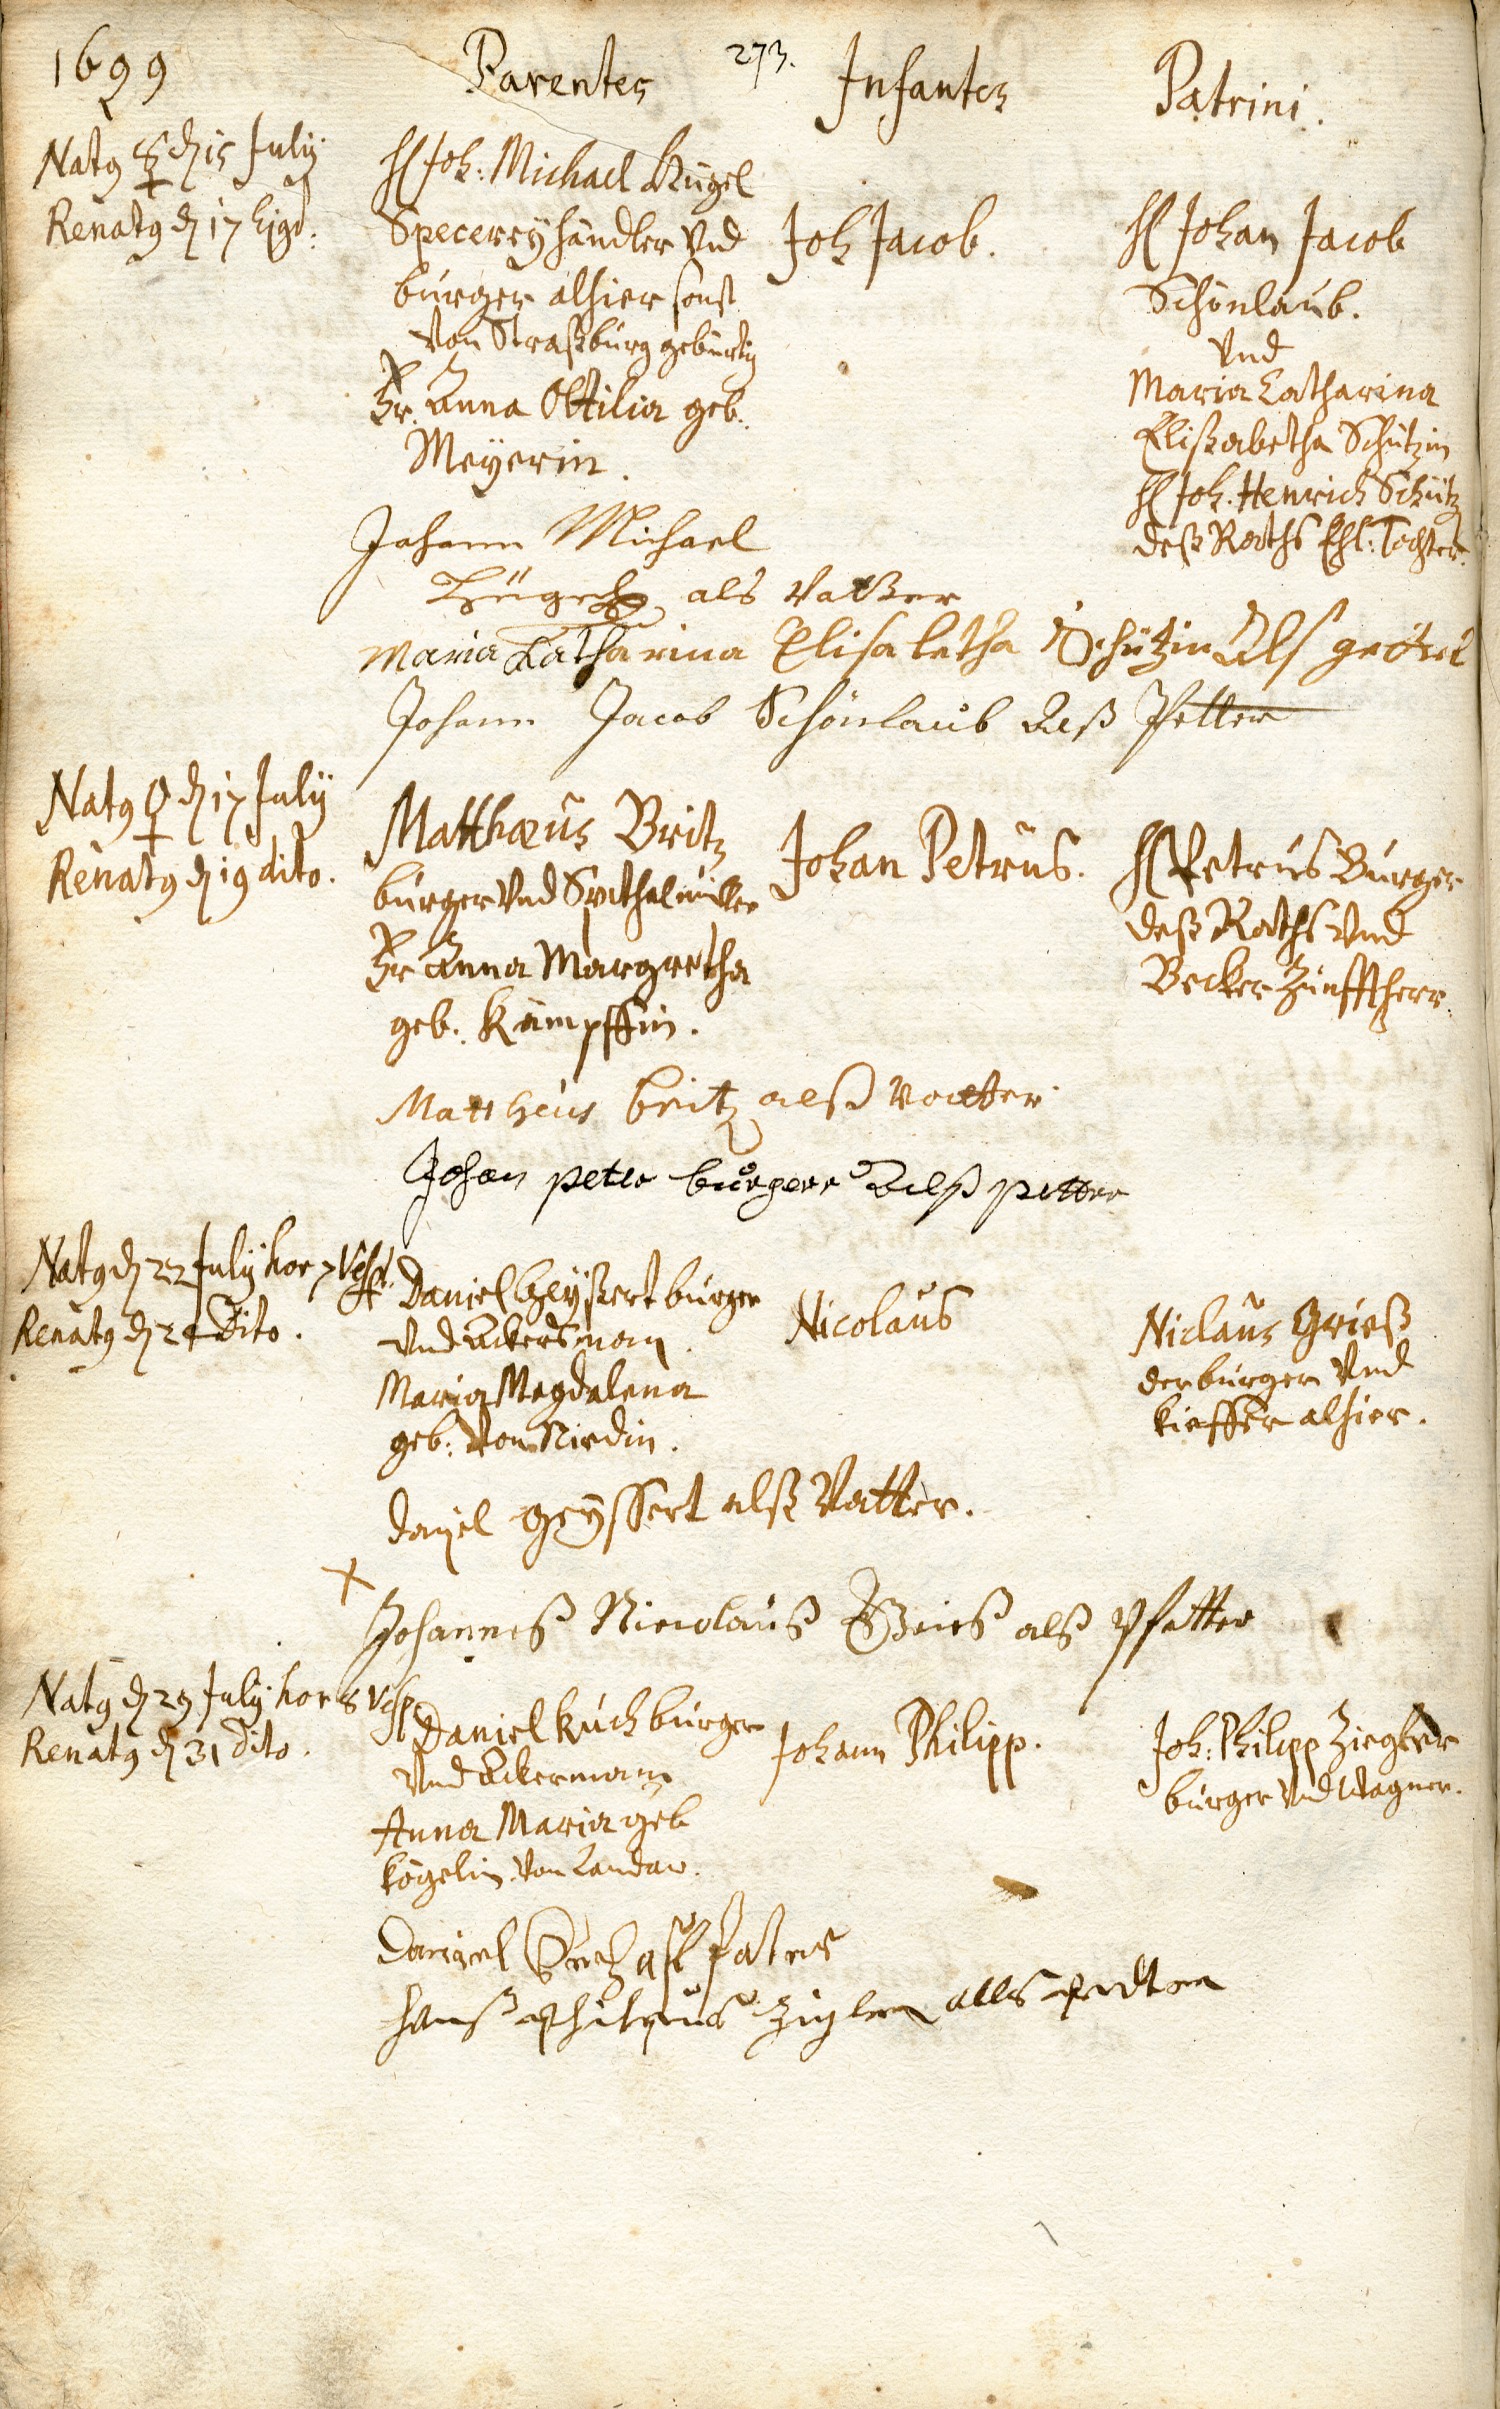 1699
Parentes
273.
Infantes
Patrini.
Natg ☿ d 15 July
Renatg d 17 Ejgd:
H Joh: Michael Hügel
Specereyhändler Vnd
burger alhier sonst
von Straßburg gebürtig
Fr. Anna Ottilia geb.
Meyerin.
Joh Jacob.
H Johan Jacob
Schönlaub.
Vnd
Maria Catharina
Elisabetha Schützin
H Joh. Henrich Schütz
deß Raths Ehl: Tochter.
Johann Michael
Hügel als Vatter
Maria Catharina Elisabetha Schützin Als gettel
Johann Jacob Schönlaub Alß Petter
Natg ♀ d 17 July
Renatg d 19 dito.
Matthæus Britz
burger Vnd Spithalmüller
Fr Anna Margretha
geb. Kämpffin.
Johan Petrus.
H Petrus Burger
deß Raths Vnd
Becker Zunfftherr.
Mattheus britz alß Vatter
Johan peter burger Alß petter
Natg d 22 July hor 7 Vesp.
Renatg d 24 Dito.
Daniel Geyßert burger
Vnd Ackersman
Maria Magdalena
geb: Von Nirdin.
Nicolaus
Niclaus Grieß
der burger Vnd
kieffer alhier.
Daniel Geyssert alß Vatter.
x
Johanneß Nicolauß Grieß alß Pfetter
Natg d 29 July hor 8 Vesp
Renatg d 31 Dito.
Daniel Kuch burger
Vnd Ackerman
Anna Maria geb
Kögelin von Landaw.
Johann Philipp.
Joh: Philipp Ziegler
burger Vnd Wagner.
Daniel Kuch alß fater
hanß Philipus Zigler alls